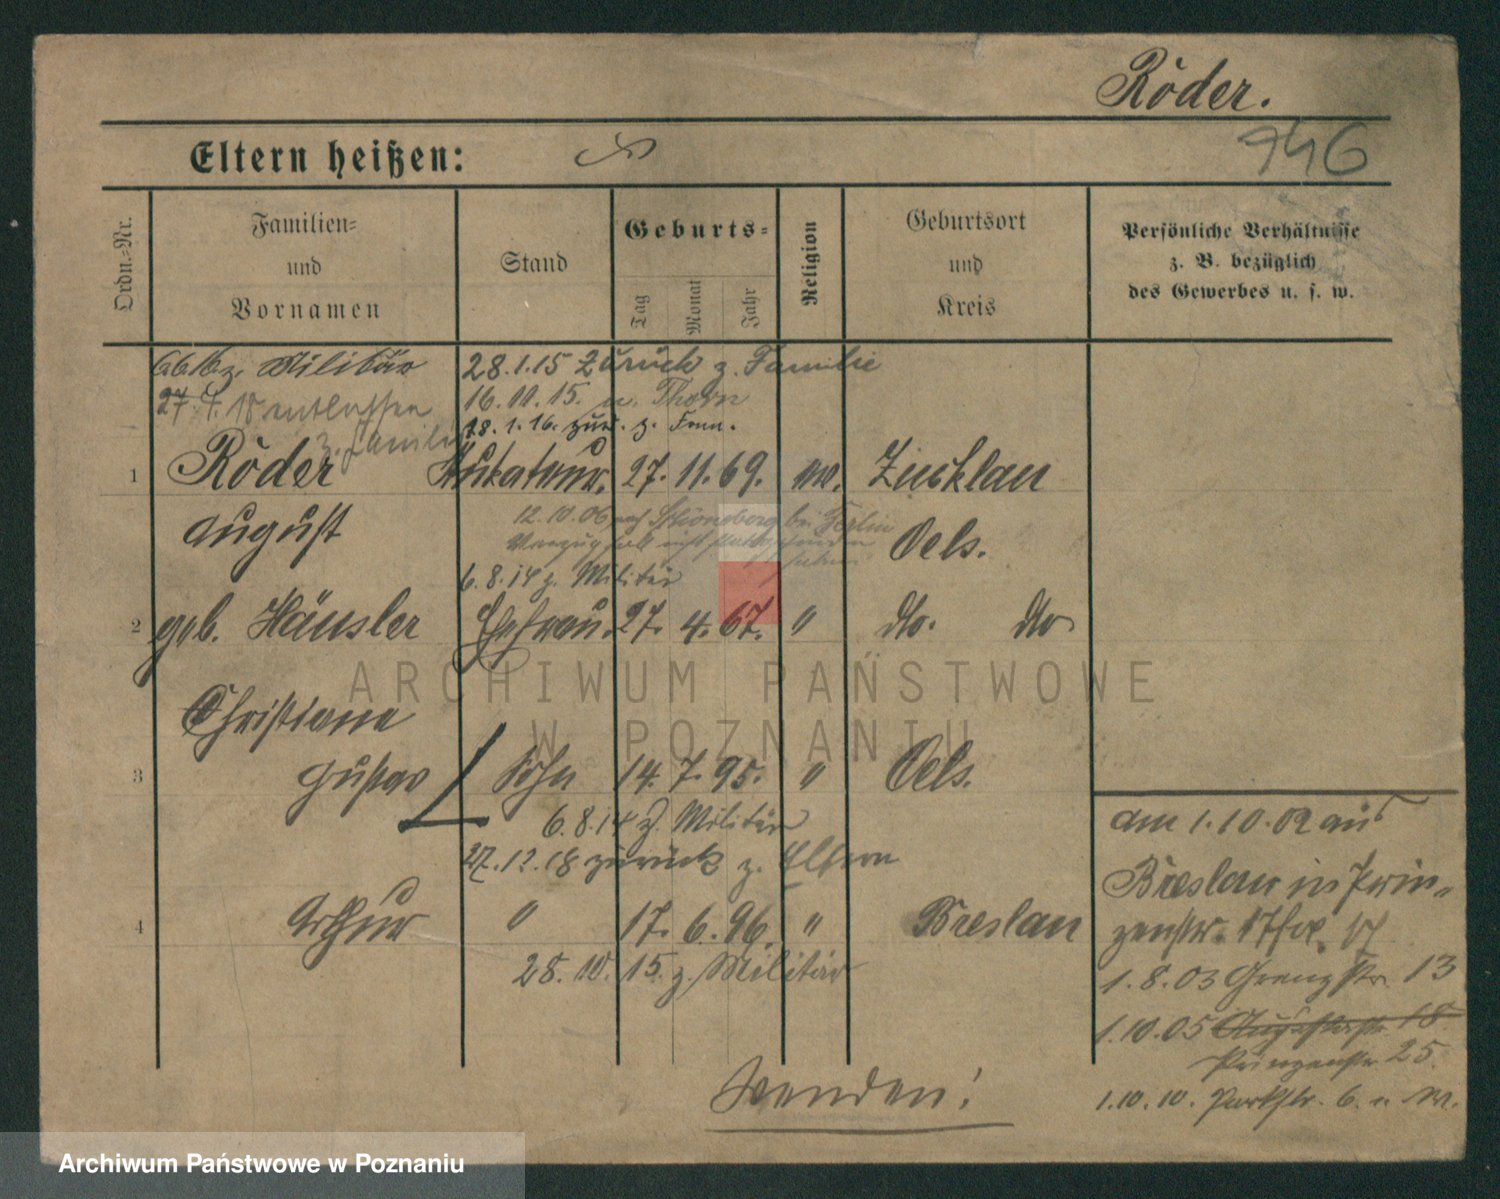 Röder.
946
Eltern heißen:
Ordn.-Nr.
Familien-
und
Vornamen
Stand
Geburts-
Tag
Monat
Jahr
Religion
Geburtsort
und
Kreis
Persönliche Verhältnisse
z. B. bezüglich
des Gewerbes u. s. w.
z. Militär 28.1.15 zurück z. Familie
entlassen 16.10.15. n. Thorn
z. Familie 18.1.16. zur. z. Fam.
1 Röder 27. 11. 69. Zucklau
August Oels.
12.10.06 nach Schöneberg bei Berlin
6.8.14 z. Militär
2 geb. Häusler Ehefrau. 27. 4. 67. " dto. dto
Christiane
3 Gustav Sohn 14. 7. 95. " Oels.
6.8.14 z. Militär
27.12.18 zurück z. Eltern
4 Arthur " 17. 6. 96. " Breslau
28.10.15. z. Militär
am 1.10.02 aus
Breslau in Prin-
zenstr. 17
1.8.03 Grenzstr. 13
1.10.05 Augustastr. 18
Prinzenstr. 25.
1.10.10. Parkstr. 6.
Wenden!
ARCHIWUM PAŃSTWOWE
W POZNANIU
Archiwum Państwowe w Poznaniu